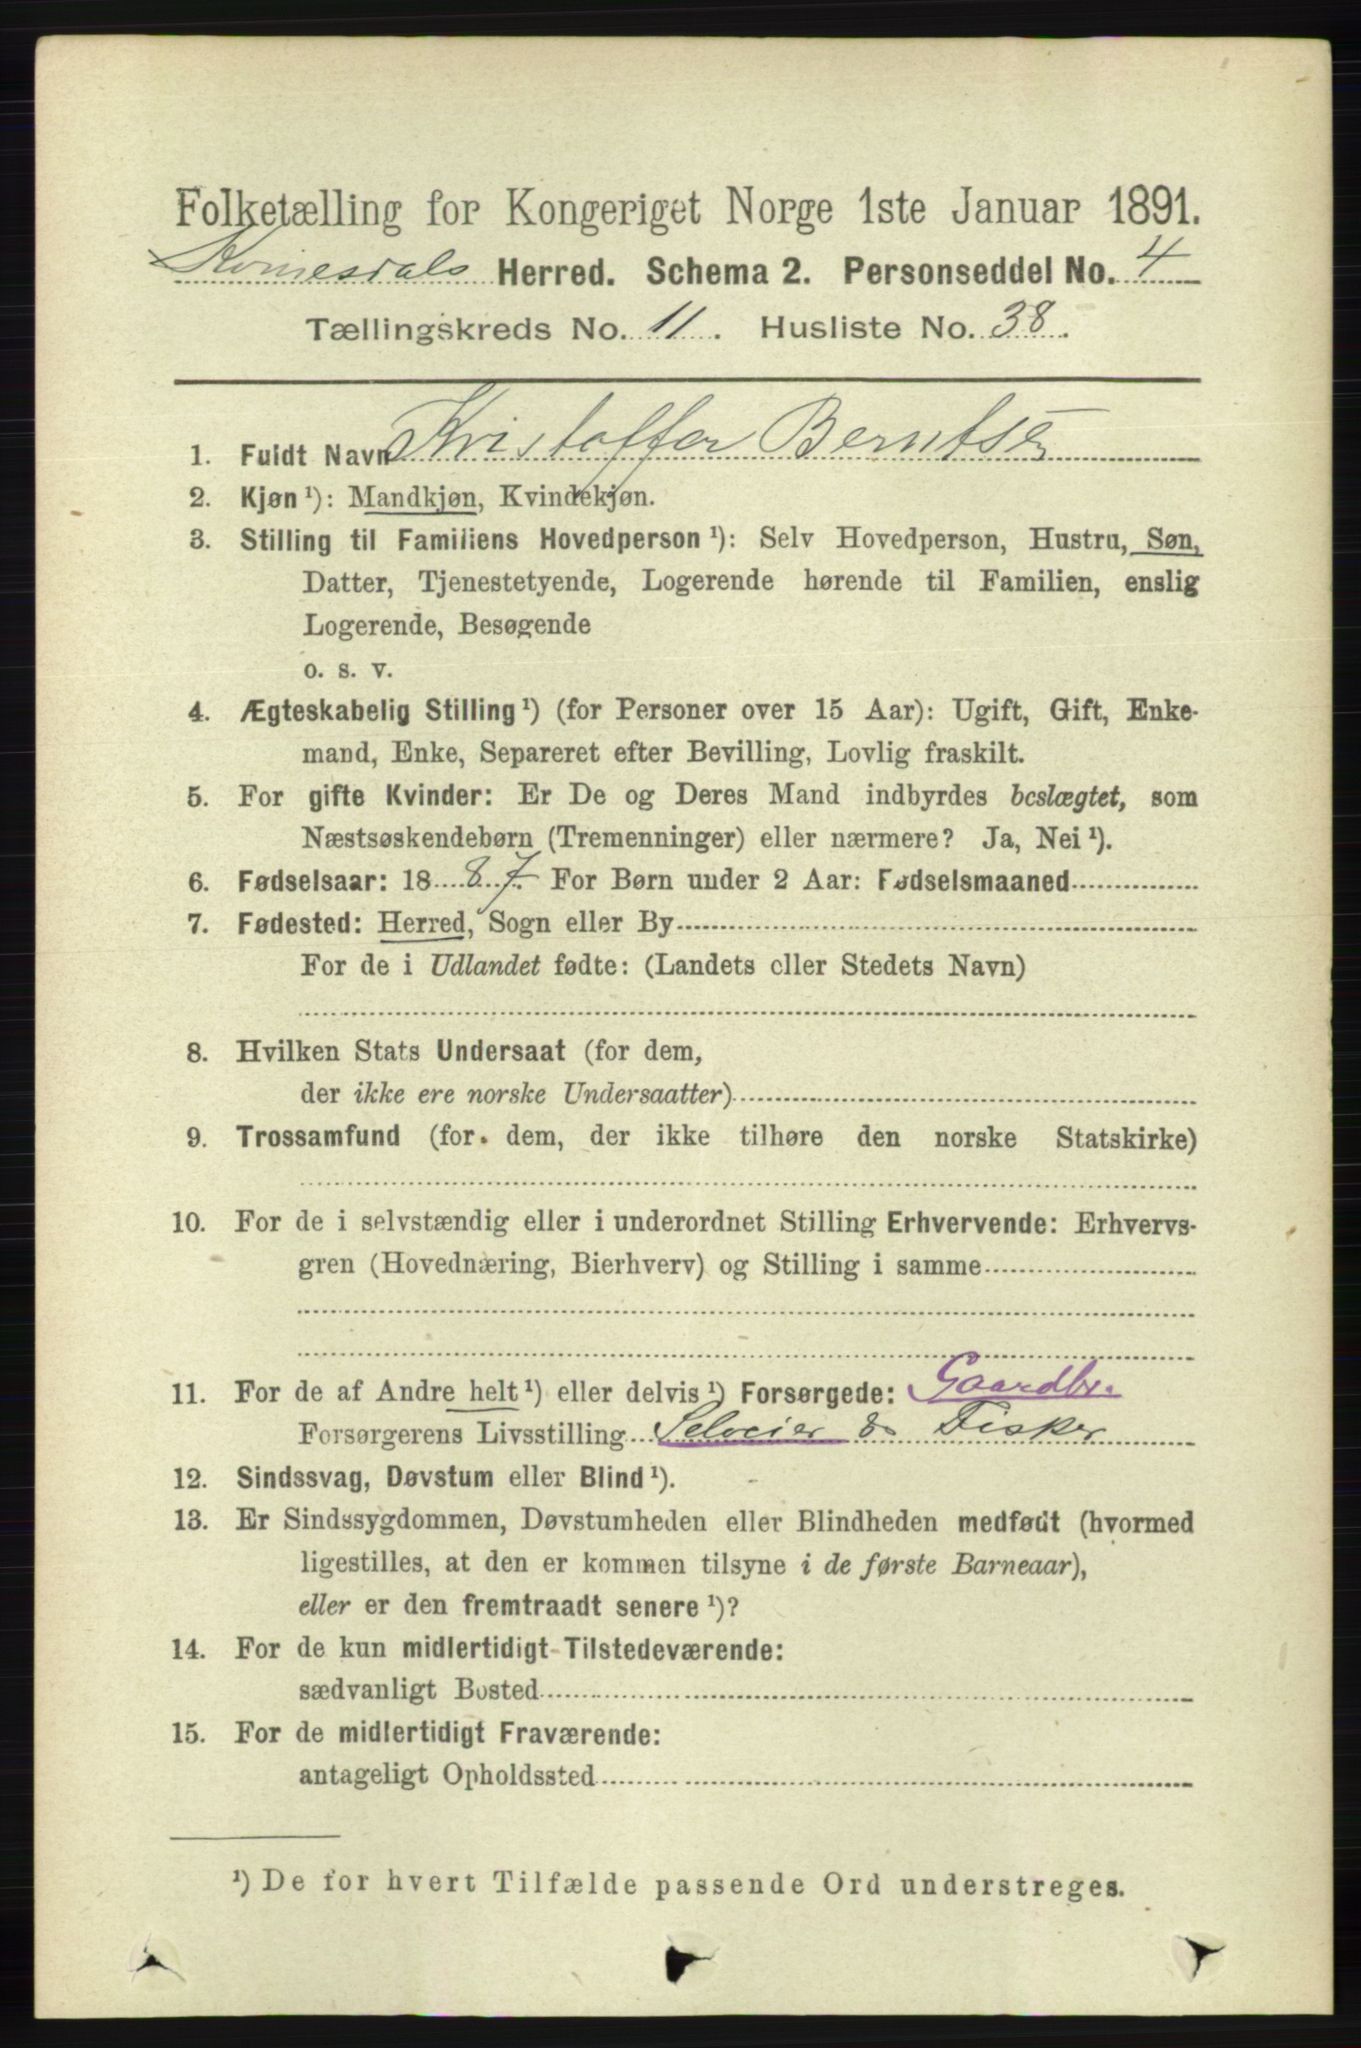 Folketælling for Kongeriget Norge 1ste Januar 1891.
Kvinesdals Herred. Schema 2. Personseddel No. 4
Tællingskreds No. 11. Husliste No. 38.
1. Fuldt Navn Kristoffer Berntsen
2. Kjøn ¹): Mandkjøn, Kvindekjøn.
3. Stilling til Familiens Hovedperson ¹): Selv Hovedperson, Hustru, Søn,
Datter, Tjenestetyende, Logerende hørende til Familien, enslig
Logerende, Besøgende
o. s. v.
4. Ægteskabelig Stilling ¹) (for Personer over 15 Aar): Ugift, Gift, Enke-
mand, Enke, Separeret efter Bevilling, Lovlig fraskilt.
5. For gifte Kvinder: Er De og Deres Mand indbyrdes beslægtet, som
Næstsøskendebørn (Tremenninger) eller nærmere? Ja, Nei ¹).
6. Fødselsaar: 1887. For Børn under 2 Aar: Fødselsmaaned
7. Fødested: Herred, Sogn eller By
For de i Udlandet fødte: (Landets eller Stedets Navn)
8. Hvilken Stats Undersaat (for dem,
der ikke ere norske Undersaatter)
9. Trossamfund (for dem, der ikke tilhøre den norske Statskirke)
10. For de i selvstændig eller i underordnet Stilling Erhvervende: Erhvervs-
gren (Hovednæring, Bierhverv) og Stilling i samme
11. For de af Andre helt ¹) eller delvis ¹) Forsørgede: Gaardbr.
Forsørgerens Livsstilling Selveier & Fisker
12. Sindssvag, Døvstum eller Blind ¹).
13. Er Sindssygdommen, Døvstumheden eller Blindheden medfødt (hvormed
ligestilles, at den er kommen tilsyne i de første Barneaar),
eller er den fremtraadt senere ¹)?
14. For de kun midlertidigt Tilstedeværende:
sædvanligt Bosted
15. For de midlertidigt Fraværende:
antageligt Opholdssted
¹) De for hvert Tilfælde passende Ord understreges.